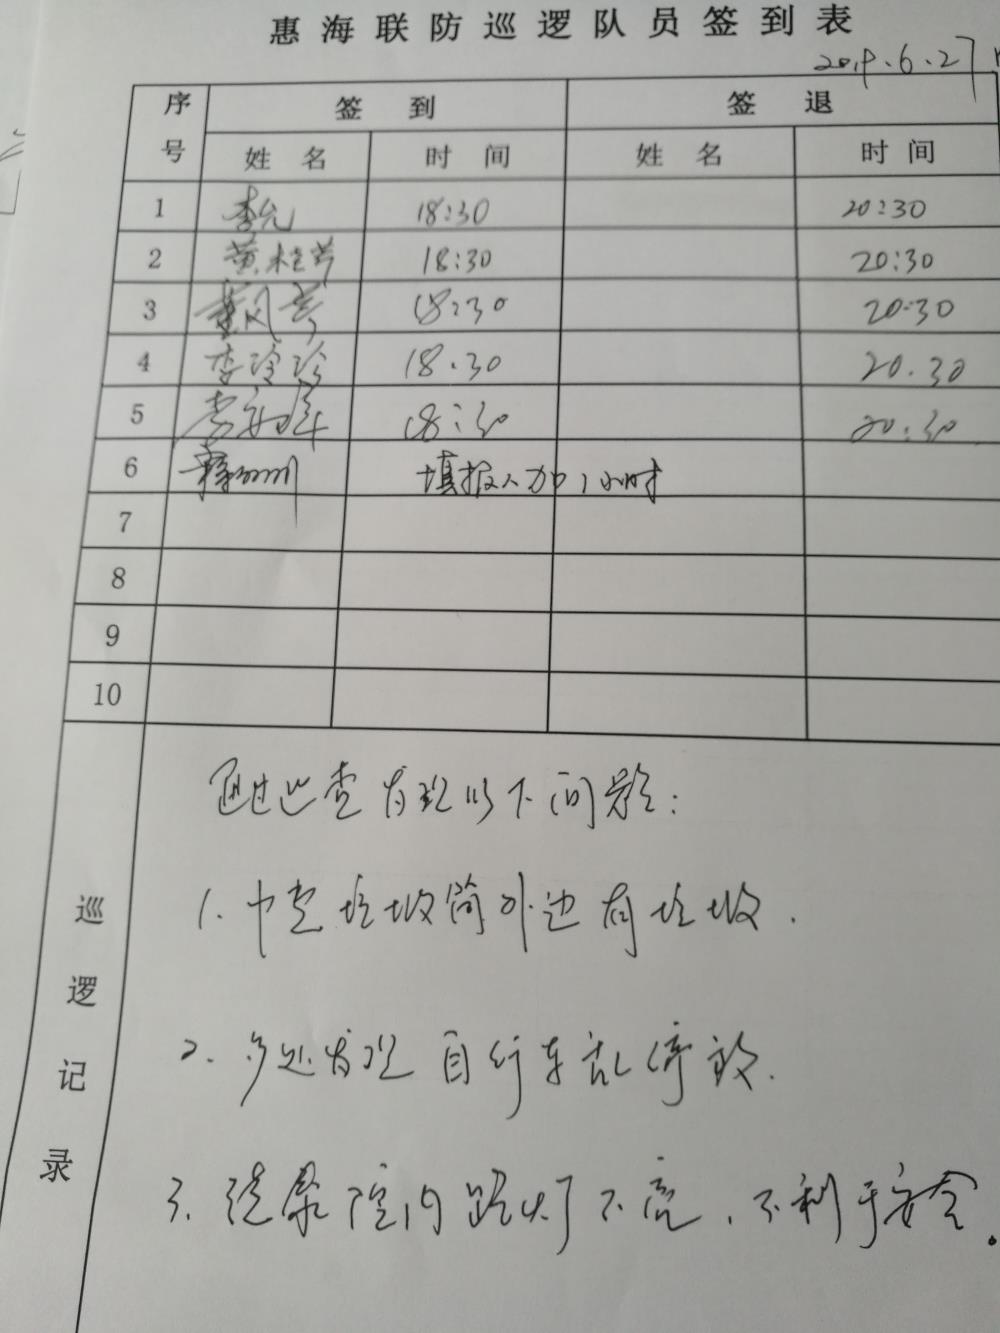 惠海联防巡逻队员签到表
2019.6.27
序号 签到 签退
姓名 时间 姓名 时间
1 李允 18:30 20:30
2 黄桂芳 18:30 20:30
3 18:30 20:30
4 李玲珍 18.30 20.30
5 18:30 20:30
6 填报人加1小时
7
8
9
10
巡逻记录
通过巡查发现以下问题:
1. 垃圾筒外边有垃圾.
2. 多处发现自行车乱停放.
3. 院内路灯不亮,不利于安全.